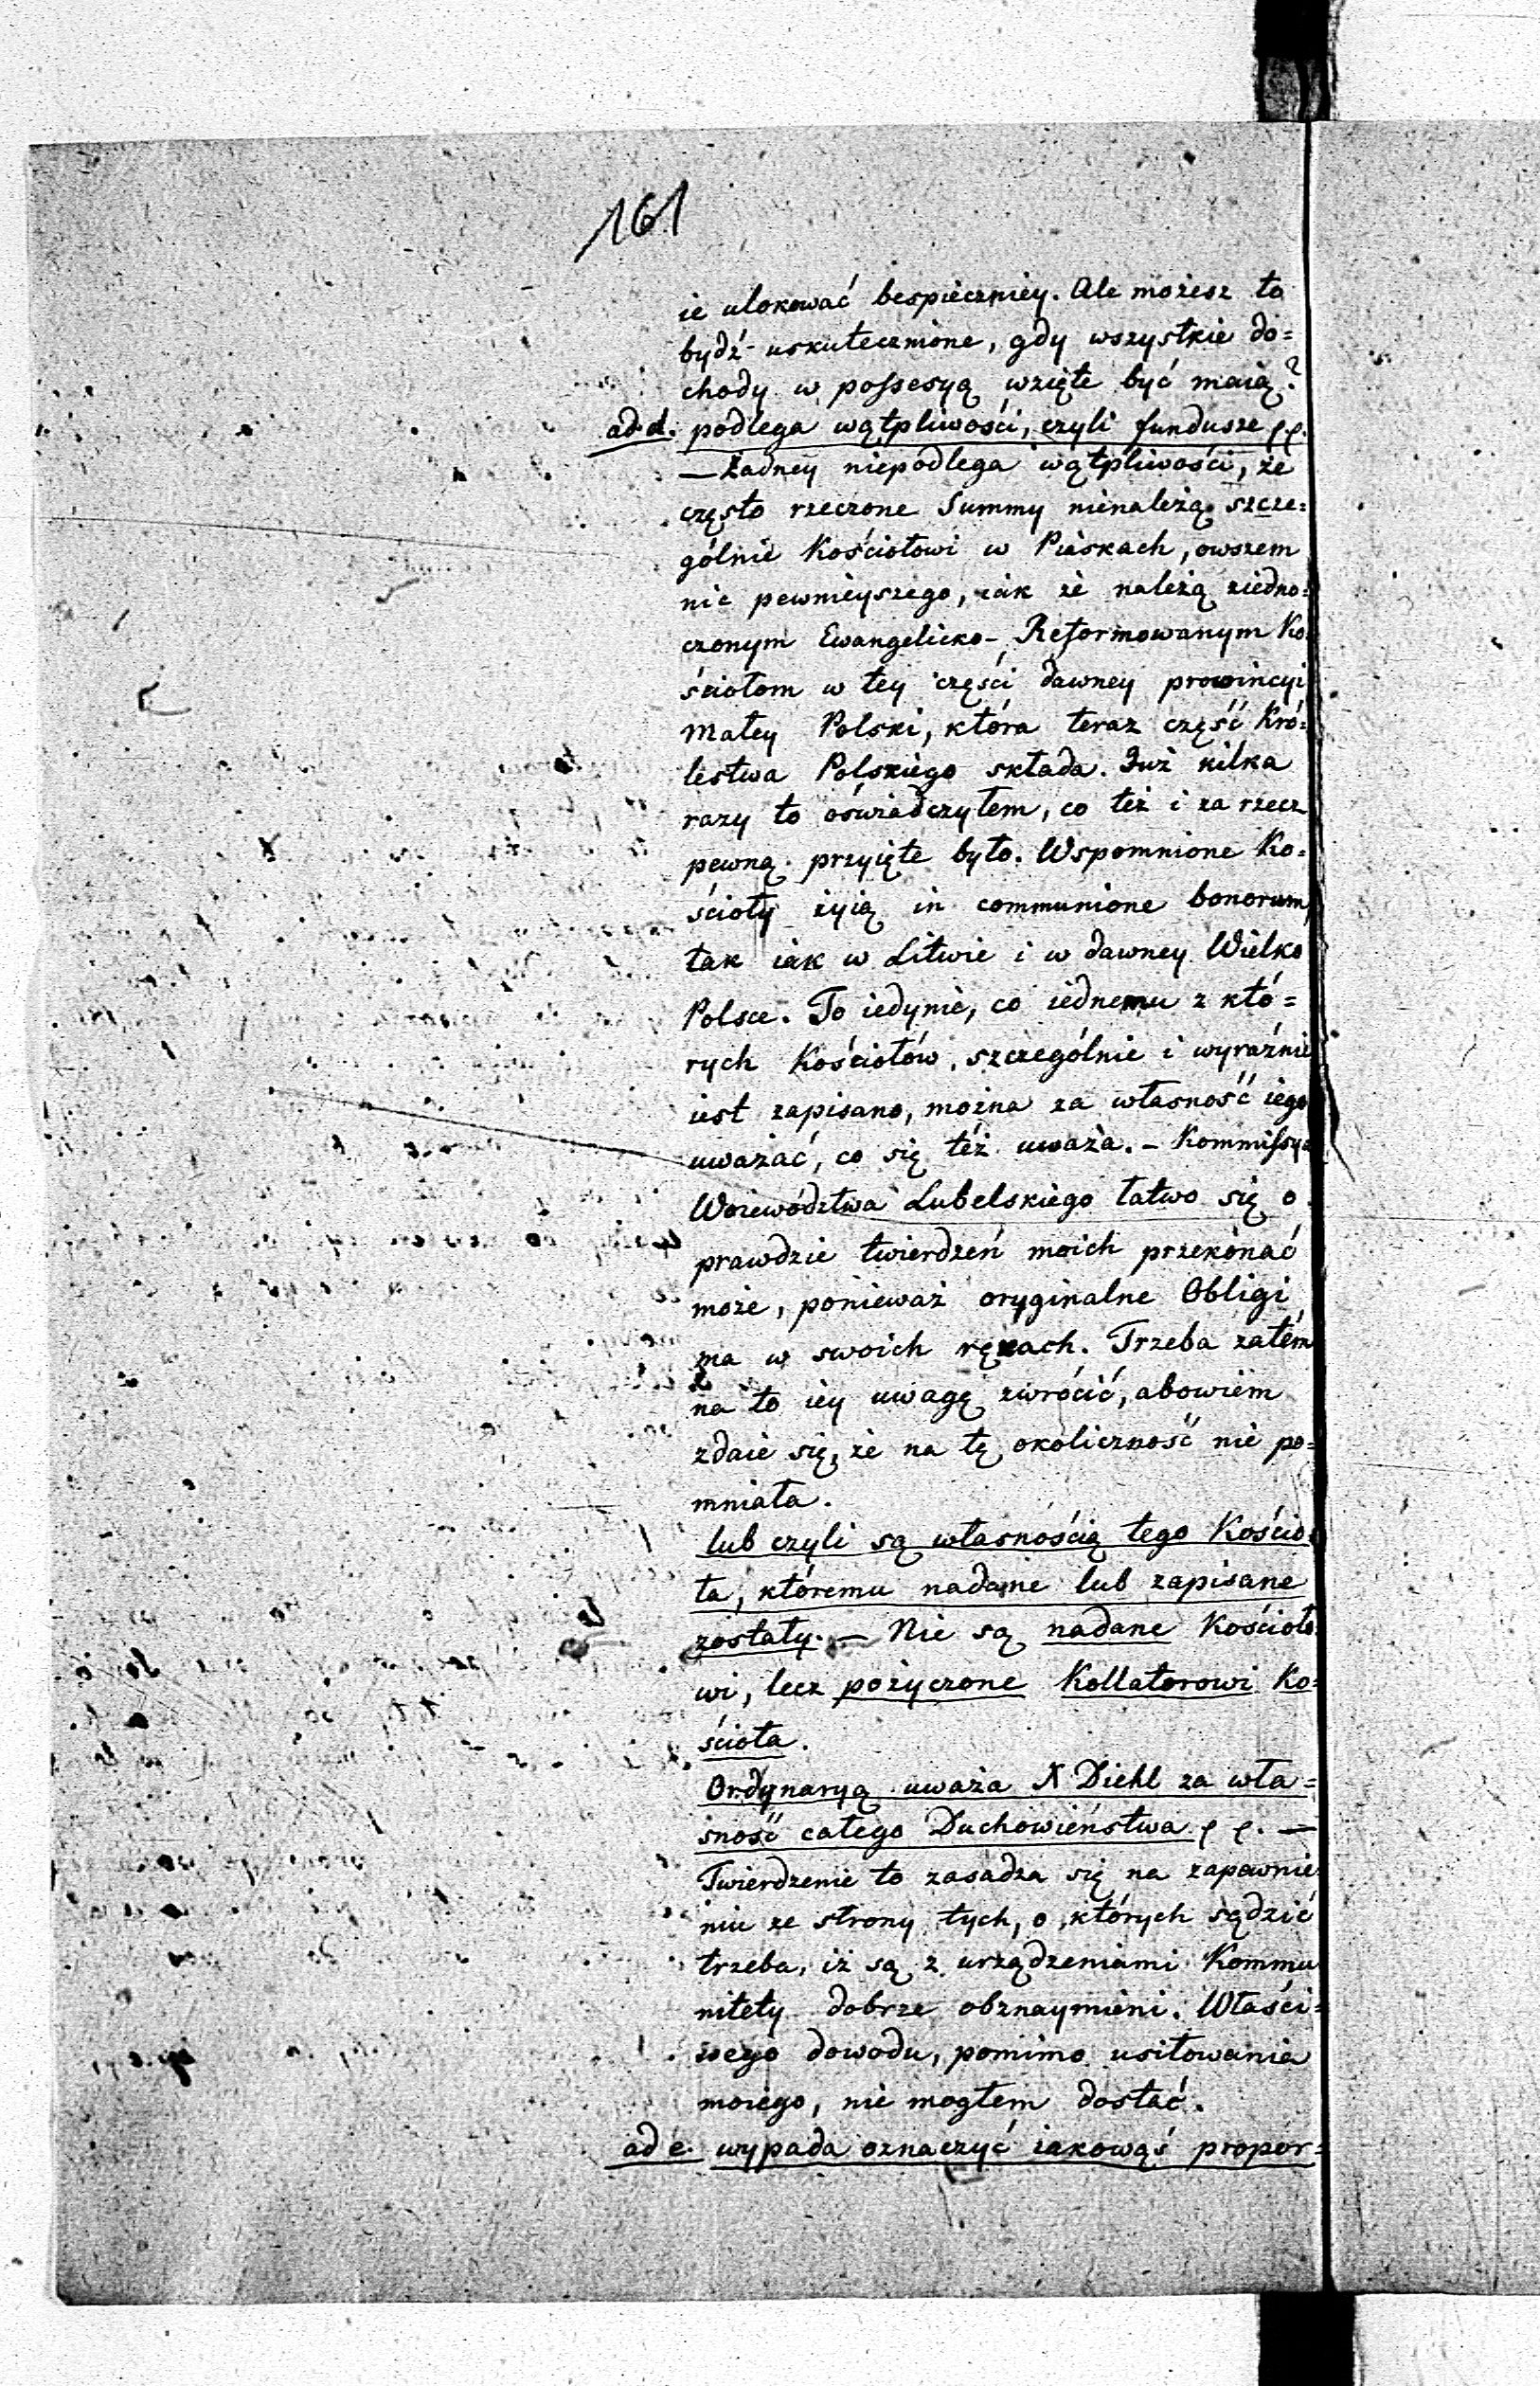 161
ie ulokować bespieczniey. Ale możesz to
bydź uskutecznione, gdy wszystkie do=
chody w possesyą wzięte być maią?
ad d. podlega wątpliwości, czyli fundusze
— Żadney niepodlega wątpliwości, że
często rzeczone Summy nienależą szcze=
gólnie Kościołowi w Piaskach, owszem
nic pewnieyszego, iak że należą ziedno=
czonym Ewangelicko-Reformowanym Ko=
ściołom w tey części dawney prowincyi
Małey Polski, która teraz część Kró=
lestwa Polskiego składa. Już kilka
razy to oświadczyłem, co też i za rzecz
pewną przyięte było. Wspomnione Ko=
ścioły żyią in communione bonorum,
tak iak w Litwie i w dawney Wielko
Polsce. To iedynie, co iednemu z któ=
rych Kościołów, szczególnie i wyraźnie
iest zapisano, można za własność iego
uważać, co się też uważa. – Kommissya
Woiewództwa Lubelskiego łatwo się o
prawdzie twierdzeń moich przekonać
może, ponieważ oryginalne Obligi
ma w swoich rękach. Trzeba zatém
na to iey uwagę zwrócić, abowiem
zdaie się, że na tę okoliczność nie po=
mniała.
lub czyli są własnością tego Kościo=
ła, któremu nadane lub zapisane
zostały. — Nie są nadane Kościoło=
wi, lecz pożyczone Kollatorowi Ko=
ścioła.
Ordynaryą uważa X Diehl za wła=
sność całego Duchowieństwa —
Twierdzenie to zasadza się na zapewnie
niu ze strony tych, o których sądzić
trzeba, iż są z urządzeniami Kommu
nitety dobrze obznaymieni. Właści=
wego dowodu, pomimo usiłowania
moiego, nie mogłem dostać.
ad e. wypada oznaczyć iakowąś propor=